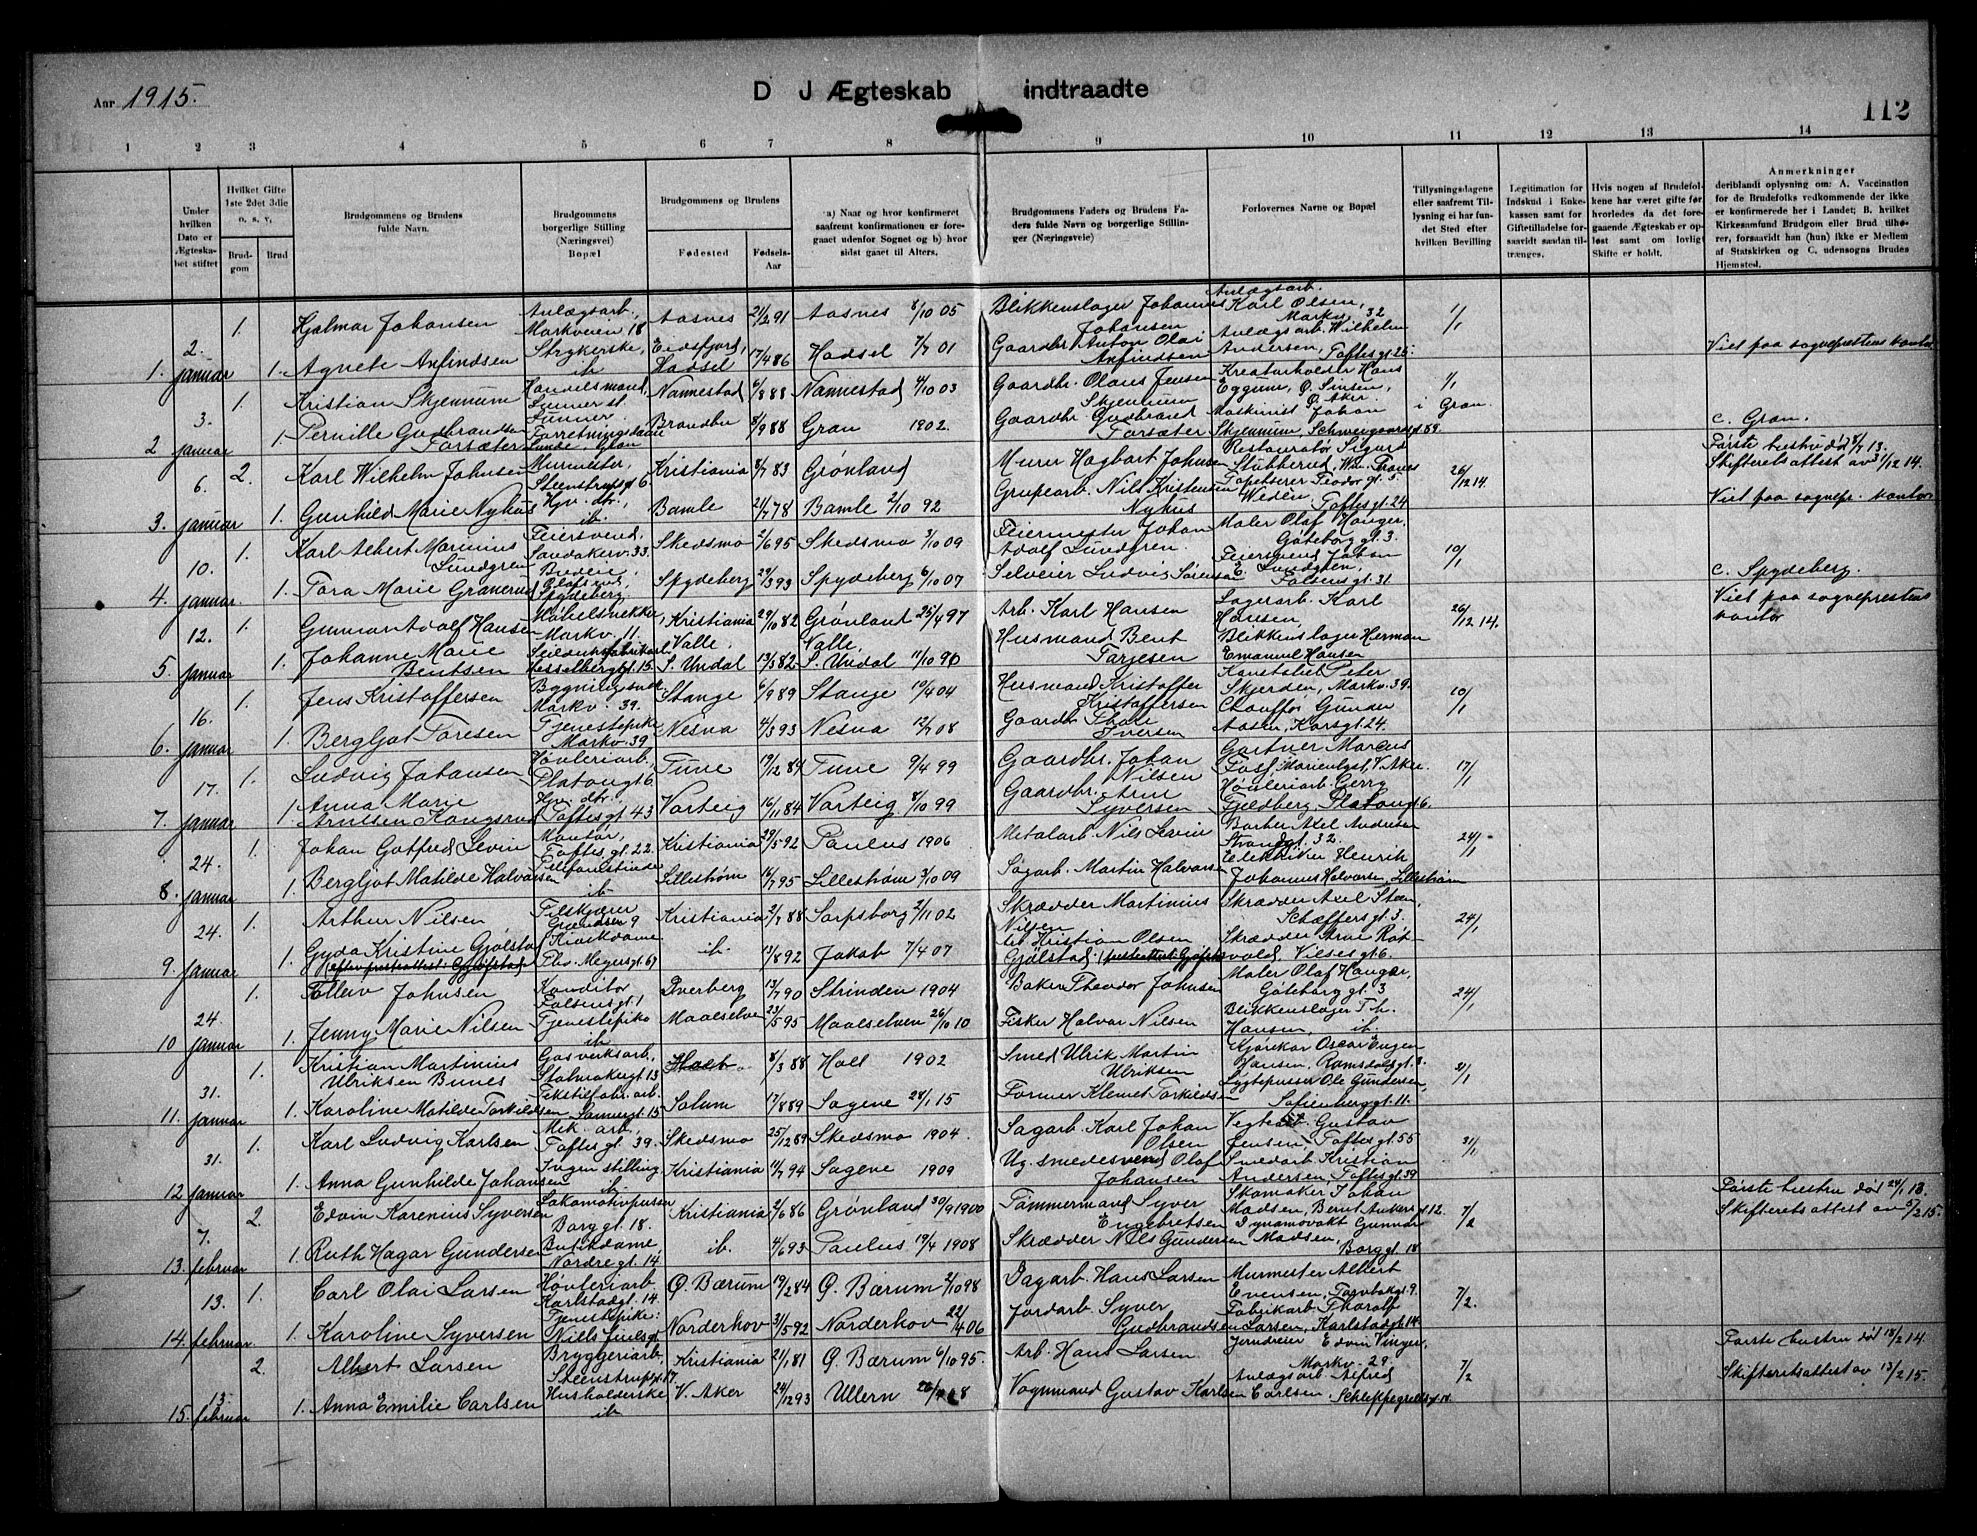 Aar 1915.
D J Ægteskab indtraadte
112
1 2 3 4 5 6 7 8 9 10 11 12 13 14
Under hvilken Dato er Ægteskabet stiftet
Hvilket Gifte 1ste 2det 3die o. s. v.
Brudgom
Brud
Brudgommens og Brudens fulde Navn.
Brudgommens borgerlige Stilling (Næringsvei) Bopæl
Brudgommens og Brudens
Fødested
Fødsels-Aar
a) Naar og hvor konfirmeret saafremt konfirmationen er foregaaet udenfor Sognet og b) hvor sidst gaaet til Alters.
Brudgommens Faders og Brudens Faders fulde Navn og borgerlige Stillinger (Næringsveie)
Forlovernes Navne og Bopæl
Tillysningsdagene eller saafremt Tillysning ei har fundet Sted efter hvilken Bevilling
Legitimation for Indskud i Enkekassen samt for Giftetilladelse forsaavidt saadan tiltrænges.
Hvis nogen af Brudefolkene har været gifte før, hvorledes da det foregaaende Ægteskab er opløst samt om lovligt Skifte er holdt.
Anmerkninger deriblandt oplysning om: A. Vaccination for de Brudefolks vedkommende der ikke er konfirmerede her i Landet; B. hvilket Kirkesamfund Brudgom eller Brud tilhører, forsaavidt han (hun) ikke er Medlem af Statskirken og C. udensogns Brudes Hjemsted.
1. 2. januar 1. Hjalmar Johansen Anlægsarb., Markveien 18 Aasnes 21/2 91 Aasnes 8/10 05 Blikkenslager Johannes Johansen Anlægsarb. Karl Olsen, Markv. 32 1/1
1. Agnete Anfindsen Strykerske, ib Eidsfjord, Hadsel 17/4 86 Hadsel 7/7 01 Gaardbr. Anton Olai Anfindsen Anlægsarb. Wilhelm Andersen, Toftes gt. 25. Viet paa sogneprestens kontor
2 3. januar 1. Kristian Skjennum Handelsmand, Lunner st. Lunner Nannestad 6/8 88 Nannestad 4/10 03 Gaardbr. Olaus Jensen Skjennum Kreaturholder Hans Eggum, Ø. Sinsen, Ø. Aker. 1/1 i Gran.
1. Pernille Gudbrandsen Forsæter Forretningsdame Lunde, Gran Brandbu 8/9 88 Gran 1902. Gaardbr. Gudbrand Forsæter Maskinist Johan Skjennum, Schweigaardsgt. 89. c. Gran.
3. 6. januar 2. Karl Wilhelm Johnsen Murmester, Steenstrupsgt. 6 Kristiania 8/7 83 Grønland Murer Hagbart Johnsen Restauratør Sigurd Stubberud, Wm. Tranes gt. 5. 26/12 14. Første hustru død 8/7 13. Skifteretsattest av 31/12 14.
1. Gunhild Marie Nyhus Hjv. dtr., ib. Bamle 21/7 78 Bamle 2/10 92 Grubearb. Nils Kristensen Nyhus Tapetserer Teodor Weden, Toftes gt. 24 Viet paa sognepr. kontor
4. 10. januar. 1. Karl Albert Marinius Lundgren Feiersvend, Sandakerv. 33. Skedsmo 2/6 95 Skedsmo 3/10 09 Feiermester Johan Adolf Lundgren. Maler Olaf Hauger, Gøteborg gt. 3. 10/1
1. Tora Marie Granerud Budeie, Spydeberg. Spydeberg 29/3 93 Spydeberg 6/10 07 Selveier Ludvig Sørensen Feiersvend Johan E. Lundgren, Falsens gt. 31. c. Spydeberg.
5. 12. januar 1. Gunnar Adolf Hansen Møbelsnekker, Markv. 11. Kristiania 29/10 82 Grønland 25/4 97 Arb. Karl Hansen Lagerarb. Karl Hansen, 26/12 14. Viet paa sogneprestens kontor
1. Johanne Marie Bentsen Hesselberggt. 15. Valle, S. Undal 13/3 82 Valle, S. Undal 11/10 96 Husmand Bent Tarjesen Blikkenslager Herman Emanuel Hansen
6. 16. januar 1. Jens Kristoffersen Bygningssnk. Markv. 39. Stange 6/9 89 Stange 19/4 04 Husmand Kristoffer Kristoffersen Konstabel Peter Skjerden, Markv. 39. 10/1
1. Bergljot Toresen Tjenestepike Markv. 39 Nesna 4/3 93 Nesna 12/7 08 Gaardbr. Thore Iversen Chauffør Gunder Aaster, Korsgt. 24.
7. 17. januar 1. Ludvig Johansen Høvleriarb., Platousgt 6. Tune 19/12 84 Tune 9/4 99 Gaardbr. Johan Nilsen Gartner Marcus Foss, Marienlyst, V. Aker. 17/1
1. Anna Marie Arnesen Kongsrud Hjv. dtr. Toftes gt 43 Varteig 16/11 84 Varteig 8/10 99 Gaardbr. Arne Syversen Høvleriarb. Gerry Fjeldberg, Platousgt. 6.
8. 24. januar 1. Johan Gotfred Levin Montør, Toftes gt. 22. Kristiania 29/5 92 Paulus 1906 Metalarb. Nils Levin Barber Axel Andersen Strandgt. 32. 24/1
1. Bergljot Matilde Halvorsen ib Lillestrøm 16/7 95 Lillestrøm 3/10 09 Sagarb. Martin Halvorsen Elektriker Henrik Johannes Halvorsen, Lillestrøm
9. 24. januar 1. Arthur Nilsen Tilskjærer Grændsen 9 Kristiania 2/7 88 Sarpsborg 2/11 02 Skrædder Martinius Nilsen Skrædder Axel Steen, Schæffers gt. 3. 24/1
1. Gyda Kristine Gjølstad Butikdame Thv. Meyersgt. 67 ib. 13/8 92 Jakob 7/4 07 Kristian Olsen Gjølstad Skrædder Arne Røtvold, Vilses gt. 6.
10 24. januar 1. Tolleiv Johnsen Konditor Falsensgt. 1 Dverberg 13/7 90 Strinden 1904 Baker Theodor Johnsen Maler Olaf Hauger, Gøteborg gt. 3 24/1
1. Jenny Marie Nilsen Tjenestepike ib Maalselven 23/5 95 Maalselven 26/10 10 Fisker Halvor Nilsen Blikkenslager Th. Hansen, ib.
11. 31. januar 1. Kristian Martinius Ulriksen Bunes Gasverksarb., Stolmakergt. 13 Holt 8/3 88 Holt 1902 Smed Ulrik Martin Ulriksen Kjørekar Oscar Eugen Hansen, Ramsdalsgt. 8. 31/1
1. Karoline Matilde Torkildsen Tekstilfabr. arb. Sannergt. 15 Solum 17/8 89 Sagene 28/1 15 Former Klemet Torkildsen Lygtepusser Ole Gundersen, Sofienberggt. 11.
12 31. januar 1. Karl Ludvig Karlsen Mek. arb., Toftes gt. 39. Skedsmo 25/12 89 Skedsmo 1904. Sagarb. Karl Johan Olsen Vegtbet. Gustav Jensen, Toftes gt. 55 31/1
1. Anna Gunhilde Johansen Ingen stilling, ib Kristiania 11/7 94 Sagene 1909 Ug. smedesvend Olaf Johansen Smedarb. Kristian Andersen, Toftes gt. 39
13. 7. februar 2. Edvin Karenius Syversen Lokomotivpusser Borggt. 18. Kristiania 2/6 86 Grønland 30/9 1900 Tømmermand Syver Engebretsen Skomaker Johan Madsen, Bernt Ankersgt 12. 7/2 Første hustru død 24/1 13. Skifteretsattest av 3/2 15.
1. Ruth Hagar Gundersen Butikdame, Nordre gt. 14 ib. 4/6 93 Paulus 19/4 1908 Skrædder Nils Gundersen Dynamovakt Gunnar Madsen, Borggt. 18
14. 13. februar. 1. Carl Olai Larsen Høvleriarb Karlstadgt. 14 Ø. Bærum 19/2 84 Ø. Bærum 2/10 98 Dagarb. Hans Larsen Murmester Albert Evensen, Torvbakgt. 9. 7/2.
1. Karoline Syversen Tjenestepike Niels Juels gt Norderhov 31/5 92 Norderhov 22/4 06 Jordarb. Syver Gudbrandsen Fabrikarb. Thorolf Larsen, Karlstadgt. 14.
15. 13. februar 2. Albert Larsen Bryggeriarb, Steenstrupgt. 17. Kristiania 21/1 81 Ø. Bærum 6/10 95. Arb. Hans Larsen Jerndreier Edvin Vinger, Markv. 29. 7/2 Første hustru død 18/2 14. Skifteretsattest av 13/2 15.
1. Anna Emilie Carlsen Husholderske, ib V. Aker 24/12 93 Ullern Vognmand Gustav Karlsen Anlægsarb Alfred Carlsen, Schleppegrellsgt.